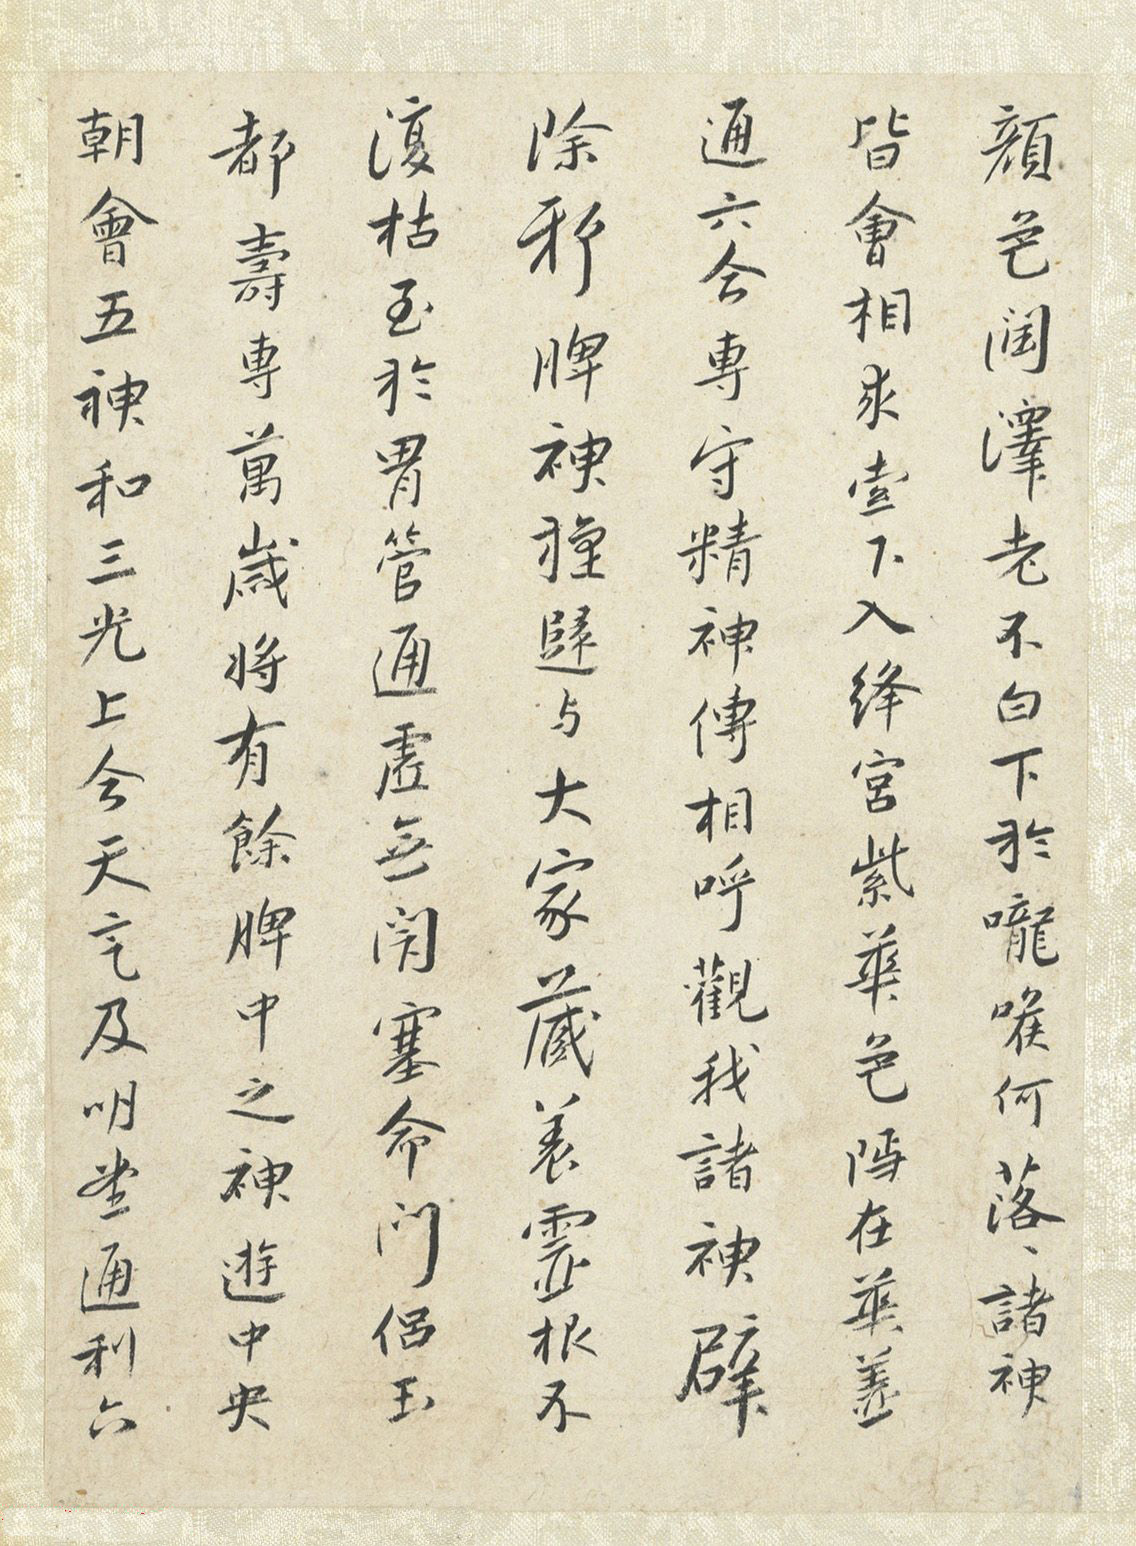 顔色潤澤老不白下於嚨喉何落〻諸神
皆會相求壹下入絳宮紫華色隱在華蓋
通六合専守精神傳相呼觀我諸神辟
除耶脾神種歸与大家藏養靈根不
復枯至於胃管通虛無閉塞命門侶玉
都壽専萬歳将有餘脾中之神遊中央
朝會五神和三光上合天氣及明堂通利六